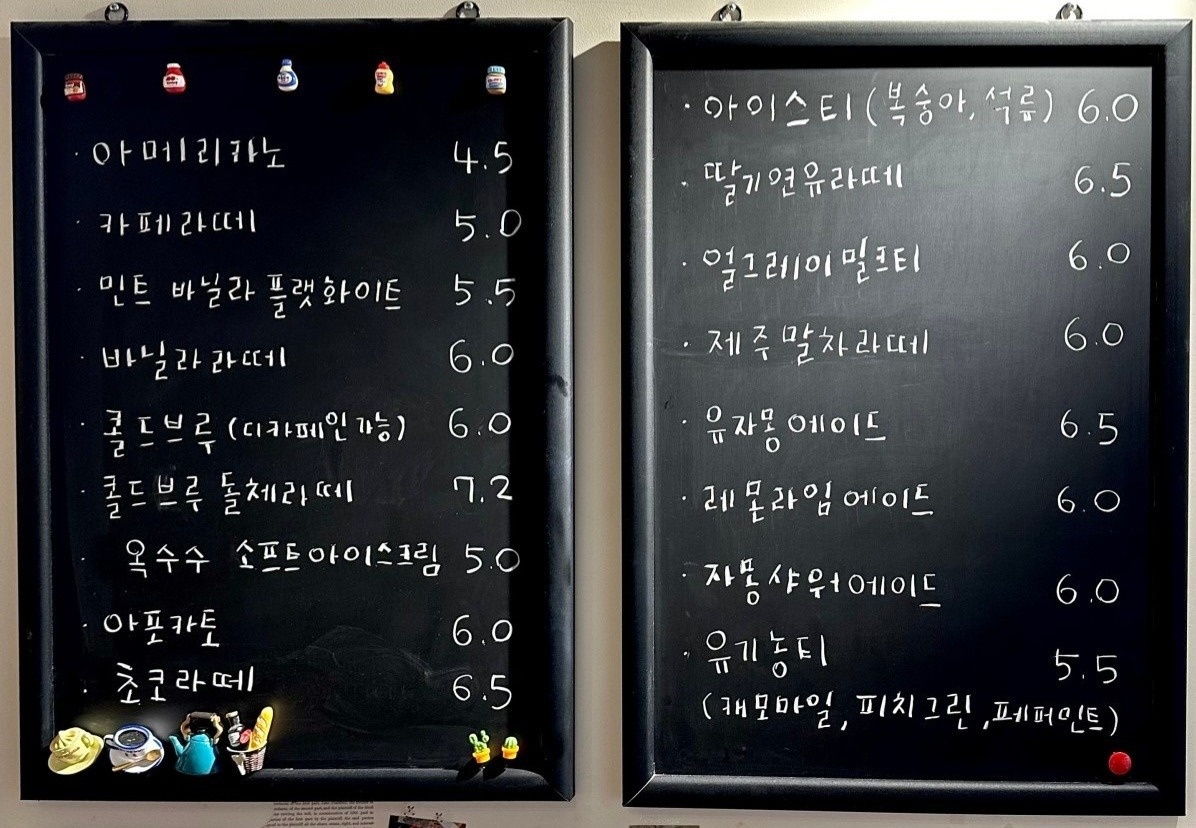 · 아메리카노 4.5
· 카페라떼 5.0
· 민트 바닐라 플랫화이트 5.5
· 바닐라라떼 6.0
· 콜드브루 (디카페인가능) 6.0
· 콜드브루 돌체라떼 7.2
· 옥수수 소프트아이스크림 5.0
· 아포카토 6.0
· 초코라떼 6.5
· 아이스티 (복숭아, 석류) 6.0
· 딸기연유라떼 6.5
· 얼그레이밀크티 6.0
· 제주말차라떼 6.0
· 유자몽에이드 6.5
· 레몬라임에이드 6.0
· 자몽샤워에이드 6.0
· 유기농티 5.5
(캐모마일, 피치그린, 페퍼민트)